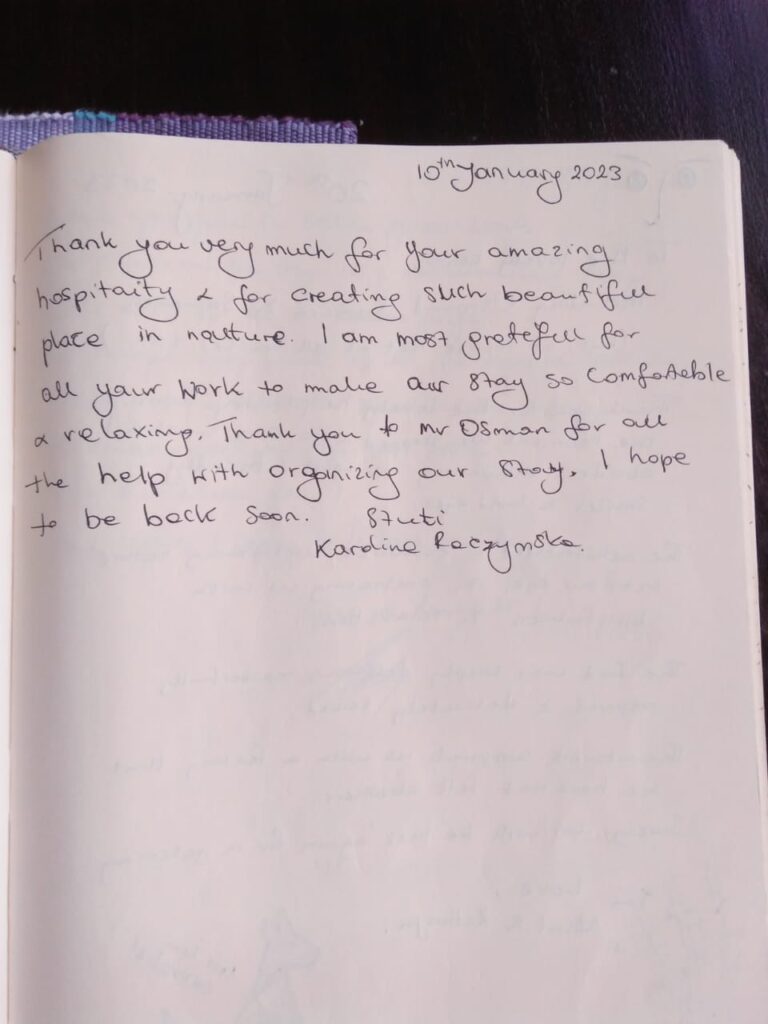 10th January 2023
Thank you very much for your amazing
hospitaity & for creating such beautifull
place in nauture. I am most grateful for
all your work to make our stay so comfortable
& relaxing. Thank you to Mr Osman for all
the help with organizing our stay. I hope
to be back soon. Stuti
Karolina Raczynska.